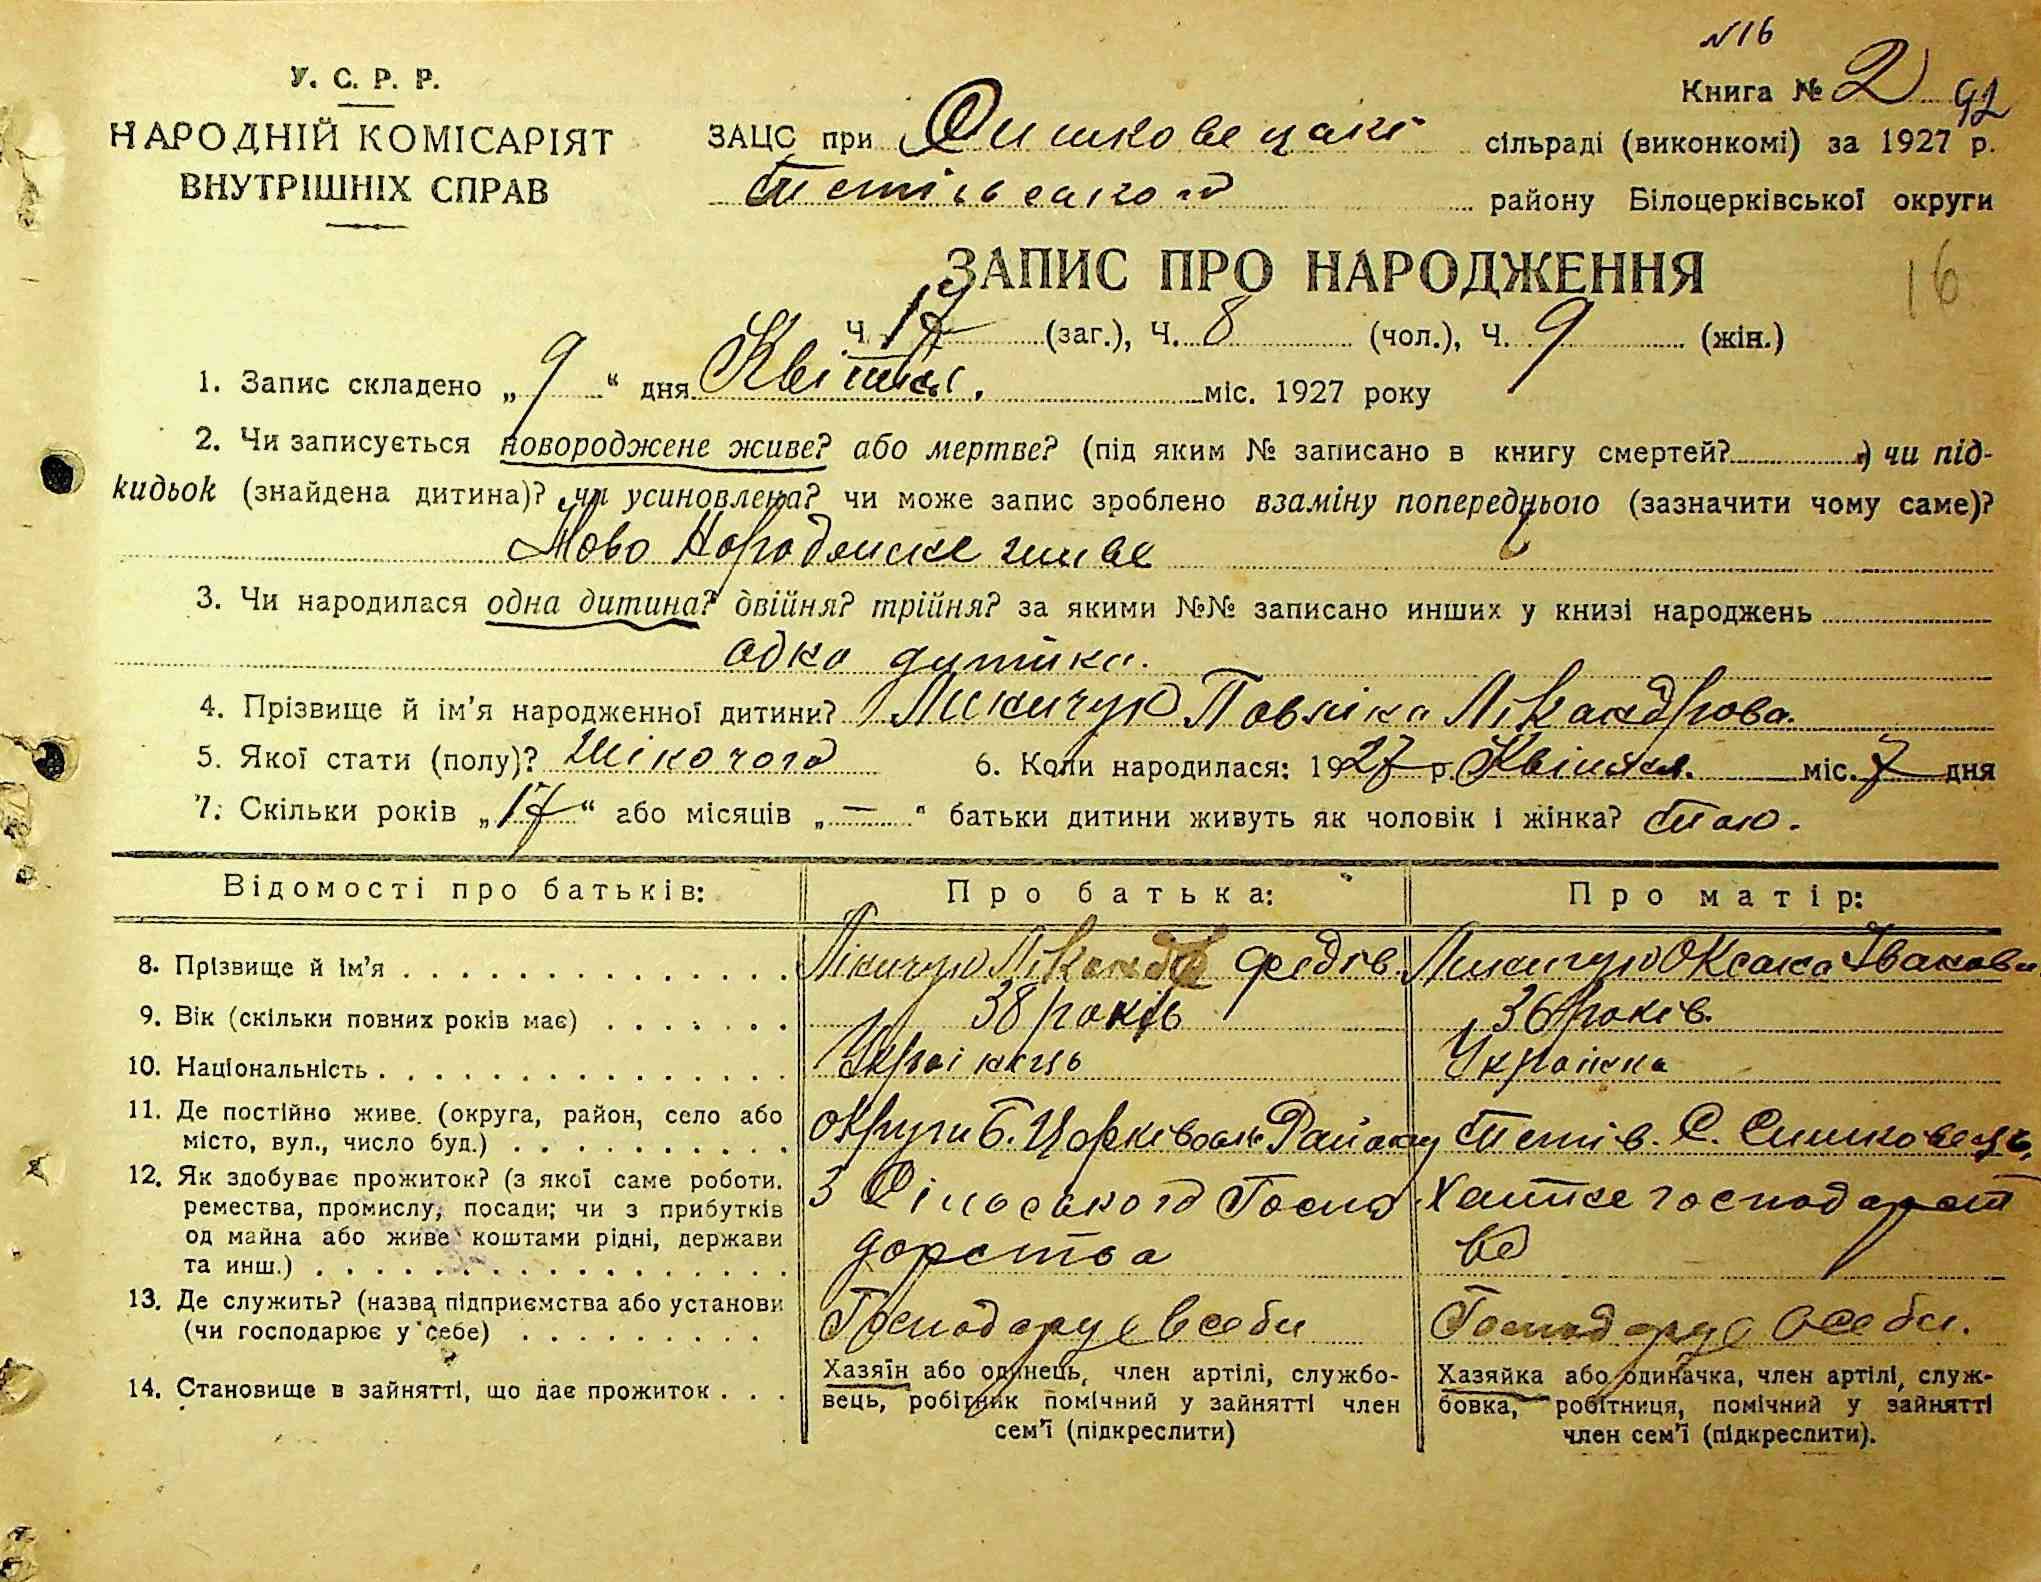 №16
У. С. Р. Р.
Книга № 2 92
НАРОДНІЙ КОМІСАРІЯТ
ВНУТРІШНІХ СПРАВ
ЗАЦС при Сишковецакі сільраді (виконкомі) за 1927 р.
Тетівського району Білоцерківської округи
ЗАПИС ПРО НАРОДЖЕННЯ
16
Ч. 17 (заг.), Ч. 8 (чол.), Ч. 9 (жін.)
1. Запис складено „ 9 “ дня Квітня. міс. 1927 року
2. Чи записується новороджене живе? або мертве? (під яким № записано в книгу смертей? ) чи під-
кидьок (знайдена дитина)? чи усиновлена? чи може запис зроблено взаміну попереднього (зазначити чому саме)?
Ново живе
3. Чи народилася одна дитина? двійня? трійня? за якими №№ записано инших у книзі народжень
одна дитина.
4. Прізвище й ім’я народженної дитини? Павлина Нікандрова.
5. Якої стати (полу)? Жіночого 6. Коли народилася: 1927 р. Квітня. міс. 7 дня
7. Скільки років „17“ або місяців „—“ батьки дитини живуть як чоловік і жінка? Так.
Відомості про батьків: Про батька: Про матір:
8. Прізвище й ім’я Федів Оксана Іванова
9. Вік (скільки повних років має) 38 років 36 років.
10. Національність Українець Українка
11. Де постійно живе. (округа, район, село або
місто, вул., число буд.) Округи Б. Церківськ Району Тетів. С.
12. Як здобуває прожиток? (з якої саме роботи.
ремества, промислу, посади; чи з прибутків
од майна або живе коштами рідні, держави
та инш.)
З Сільського Госпо
дарства
Хатне господарст
во
13. Де служить? (назва підприємства або установи
(чи господарює у себе) Господарує в себи Господарує в себи.
14. Становище в зайнятті, що дає прожиток
Хазяїн або одинець, член артілі, службо-
вець, робітник помічний у зайнятті член
сем’ї (підкреслити)
Хазяйка або одиначка, член артілі, служ-
бовка, робітниця, помічний у зайнятті
член сем’ї (підкреслити).